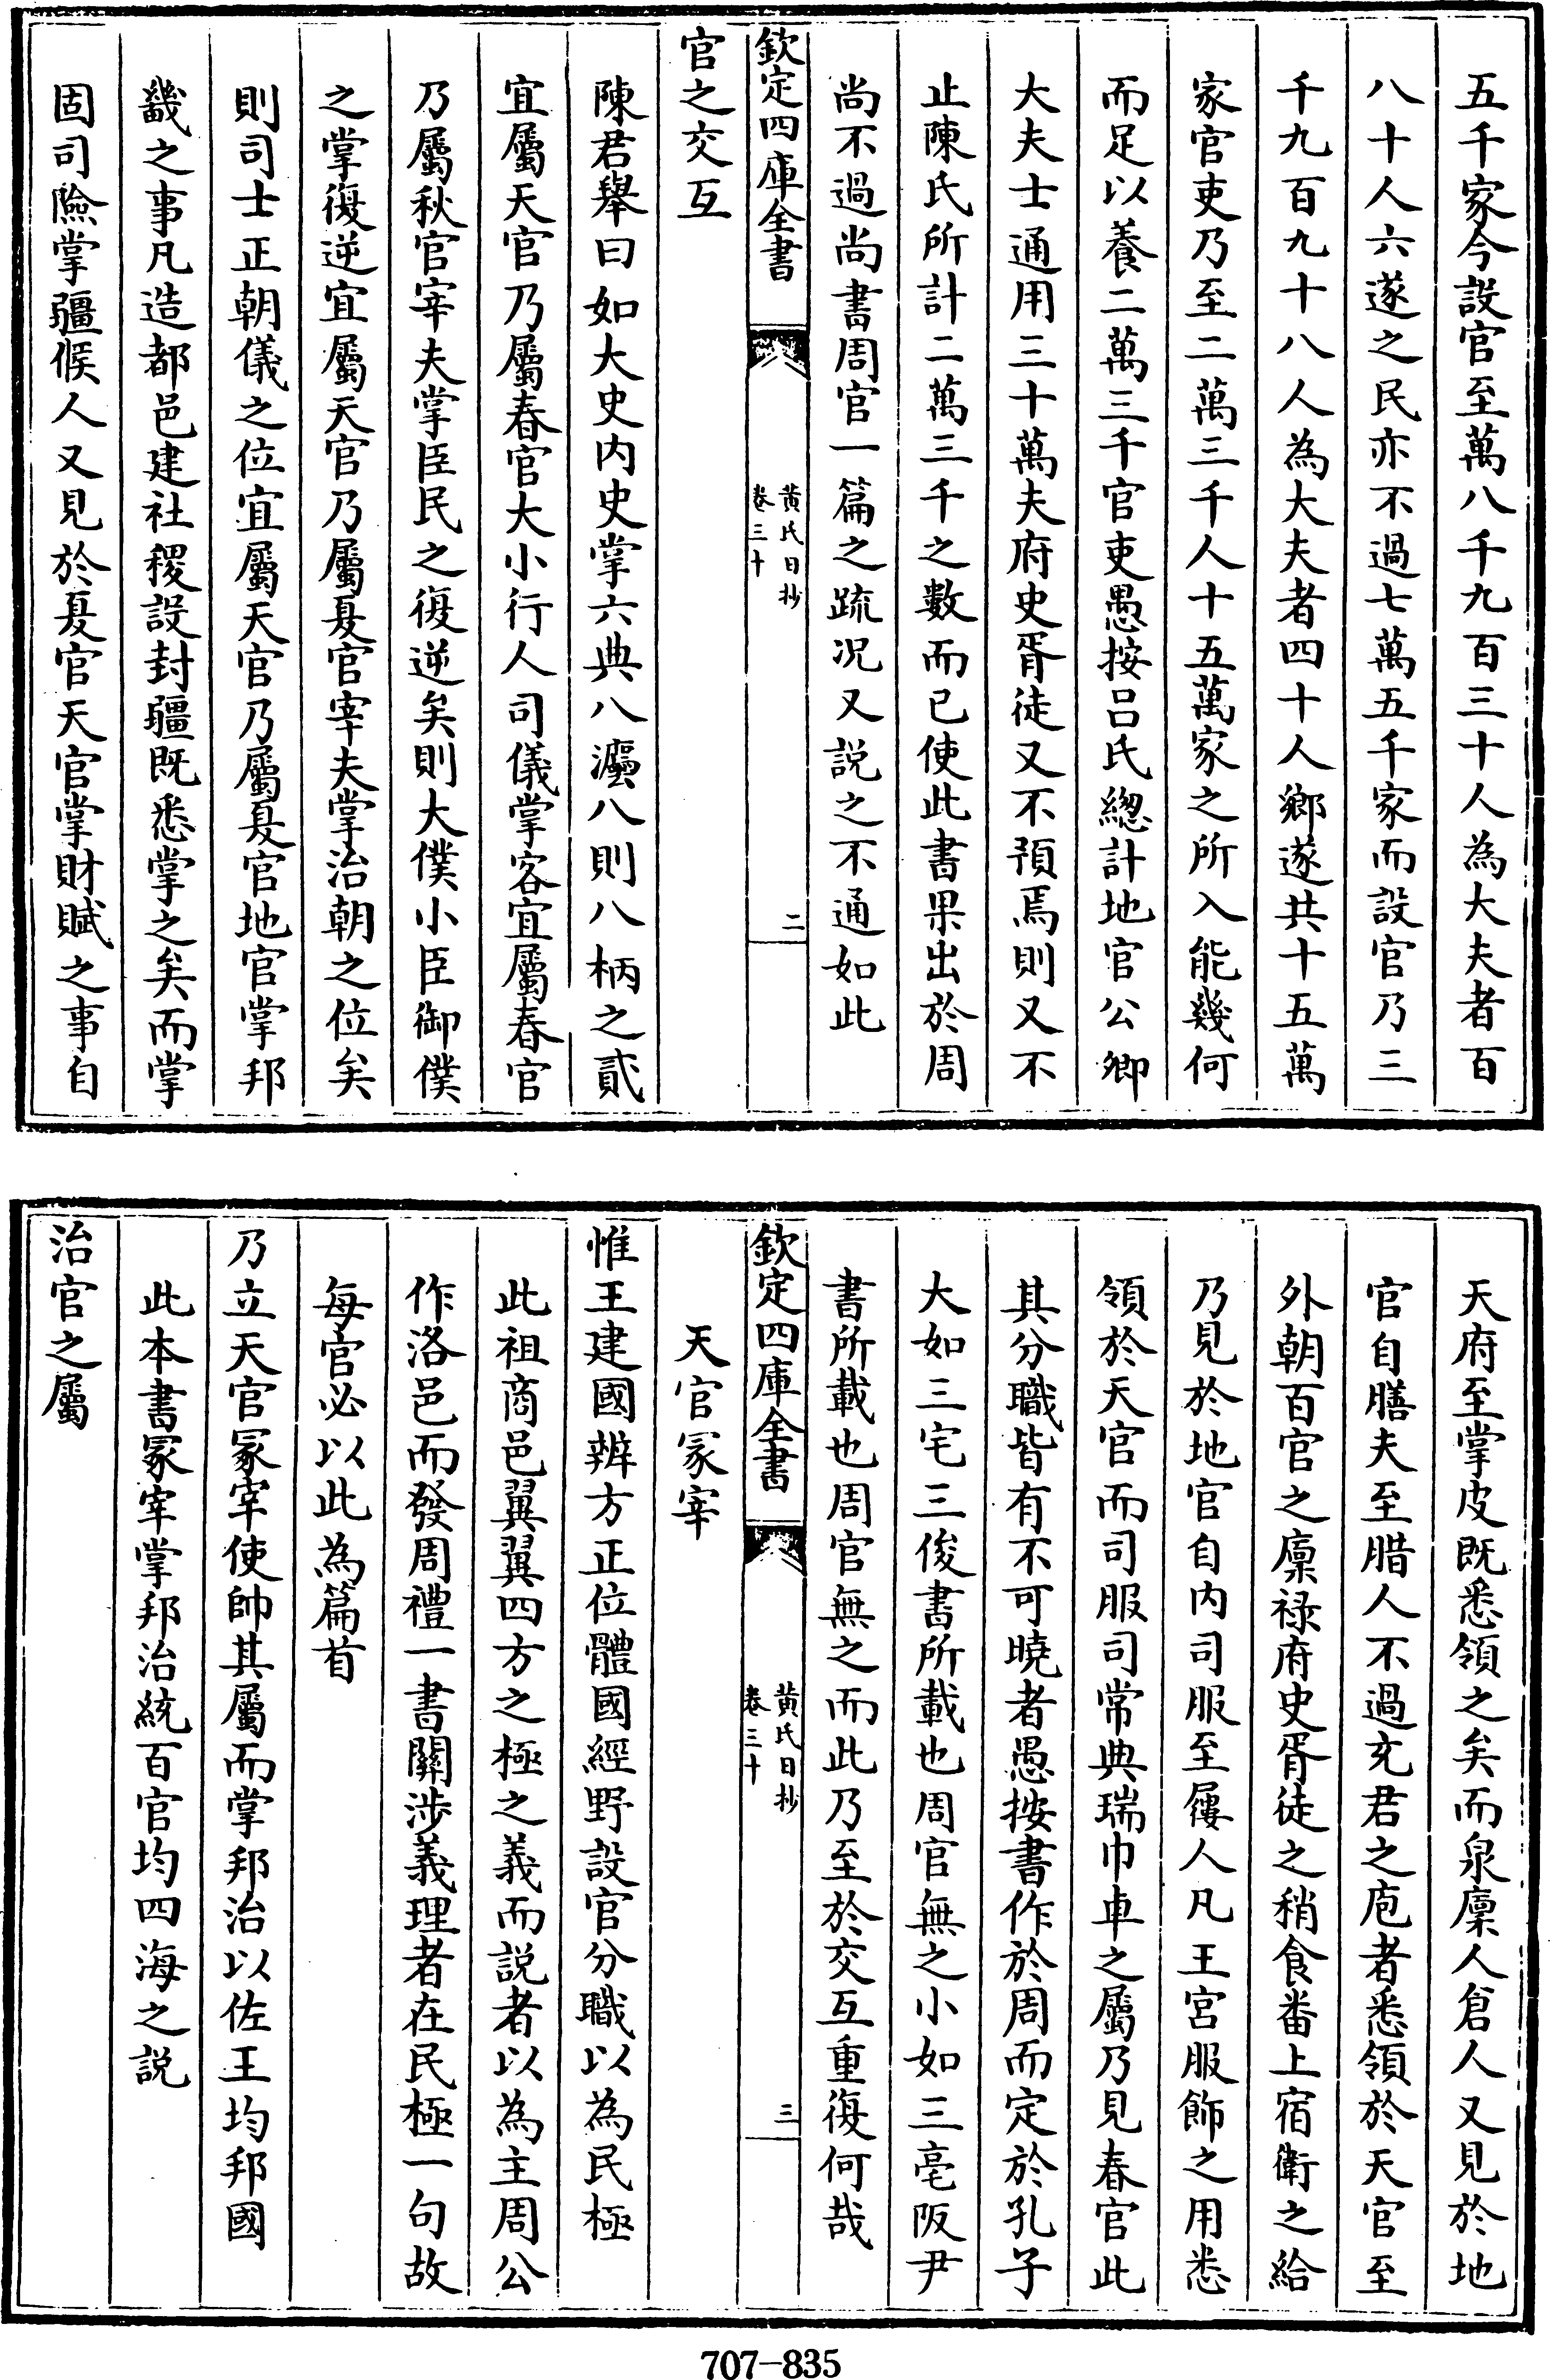 五千家今設官至萬八千九百三十人為大夫者百
八十人六遂之民亦不過七萬五千家而設官乃三
千九百九十八人為大夫者四十人鄉遂共十五萬
家官吏乃至二萬三千人十五萬家之所入能幾何
而足以養二萬三千官吏愚按吕氏緫計地官公卿
大夫士通用三十萬夫府史胥徒又不預焉則又不
止陳氏所計二萬三千之數而已使此書果出於周
尚不過尚書周官一篇之疏况又説之不通如此
欽定四庫全書
黃氏日抄
卷三十
二
官之交互
陳君舉曰如大史内史掌六典八灋八則八柄之貳
宜屬天官乃屬春官大小行人司儀掌客宜屬春官
乃屬秋官宰夫掌臣民之復逆矣則大僕小臣御僕
之掌復逆宜屬天官乃屬夏官宰夫掌治朝之位矣
則司士正朝儀之位宜屬天官乃屬夏官地官掌邦
畿之事凡造都邑建社稷設封疆既悉掌之矣而掌
固司險掌疆候人又見於夏官天官掌財賦之事自
天府至掌皮既悉領之矣而泉廩人倉人又見於地
官自膳夫至腊人不過充君之庖者悉領於天官至
外朝百官之廩禄府史胥徒之稍食畨上宿衛之給
乃見於地官自内司服至屨人凡王宫服飾之用悉
領於天官而司服司常典瑞巾車之屬乃見春官此
其分職皆有不可曉者愚按書作於周而定於孔子
大如三宅三俊書所載也周官無之小如三亳阪尹
書所載也周官無之而此乃至於交互重復何哉
欽定四庫全書
黃氏日抄
卷三十
三
天官冢宰
惟王建國辨方正位體國經野設官分職以為民極
此祖商邑翼翼四方之極之義而説者以為主周公
作洛邑而發周禮一書關涉義理者在民極一句故
每官必以此為篇首
乃立天官冢宰使帥其屬而掌邦治以佐王均邦國
此本書冢宰掌邦治統百官均四海之説
治官之屬
707-835